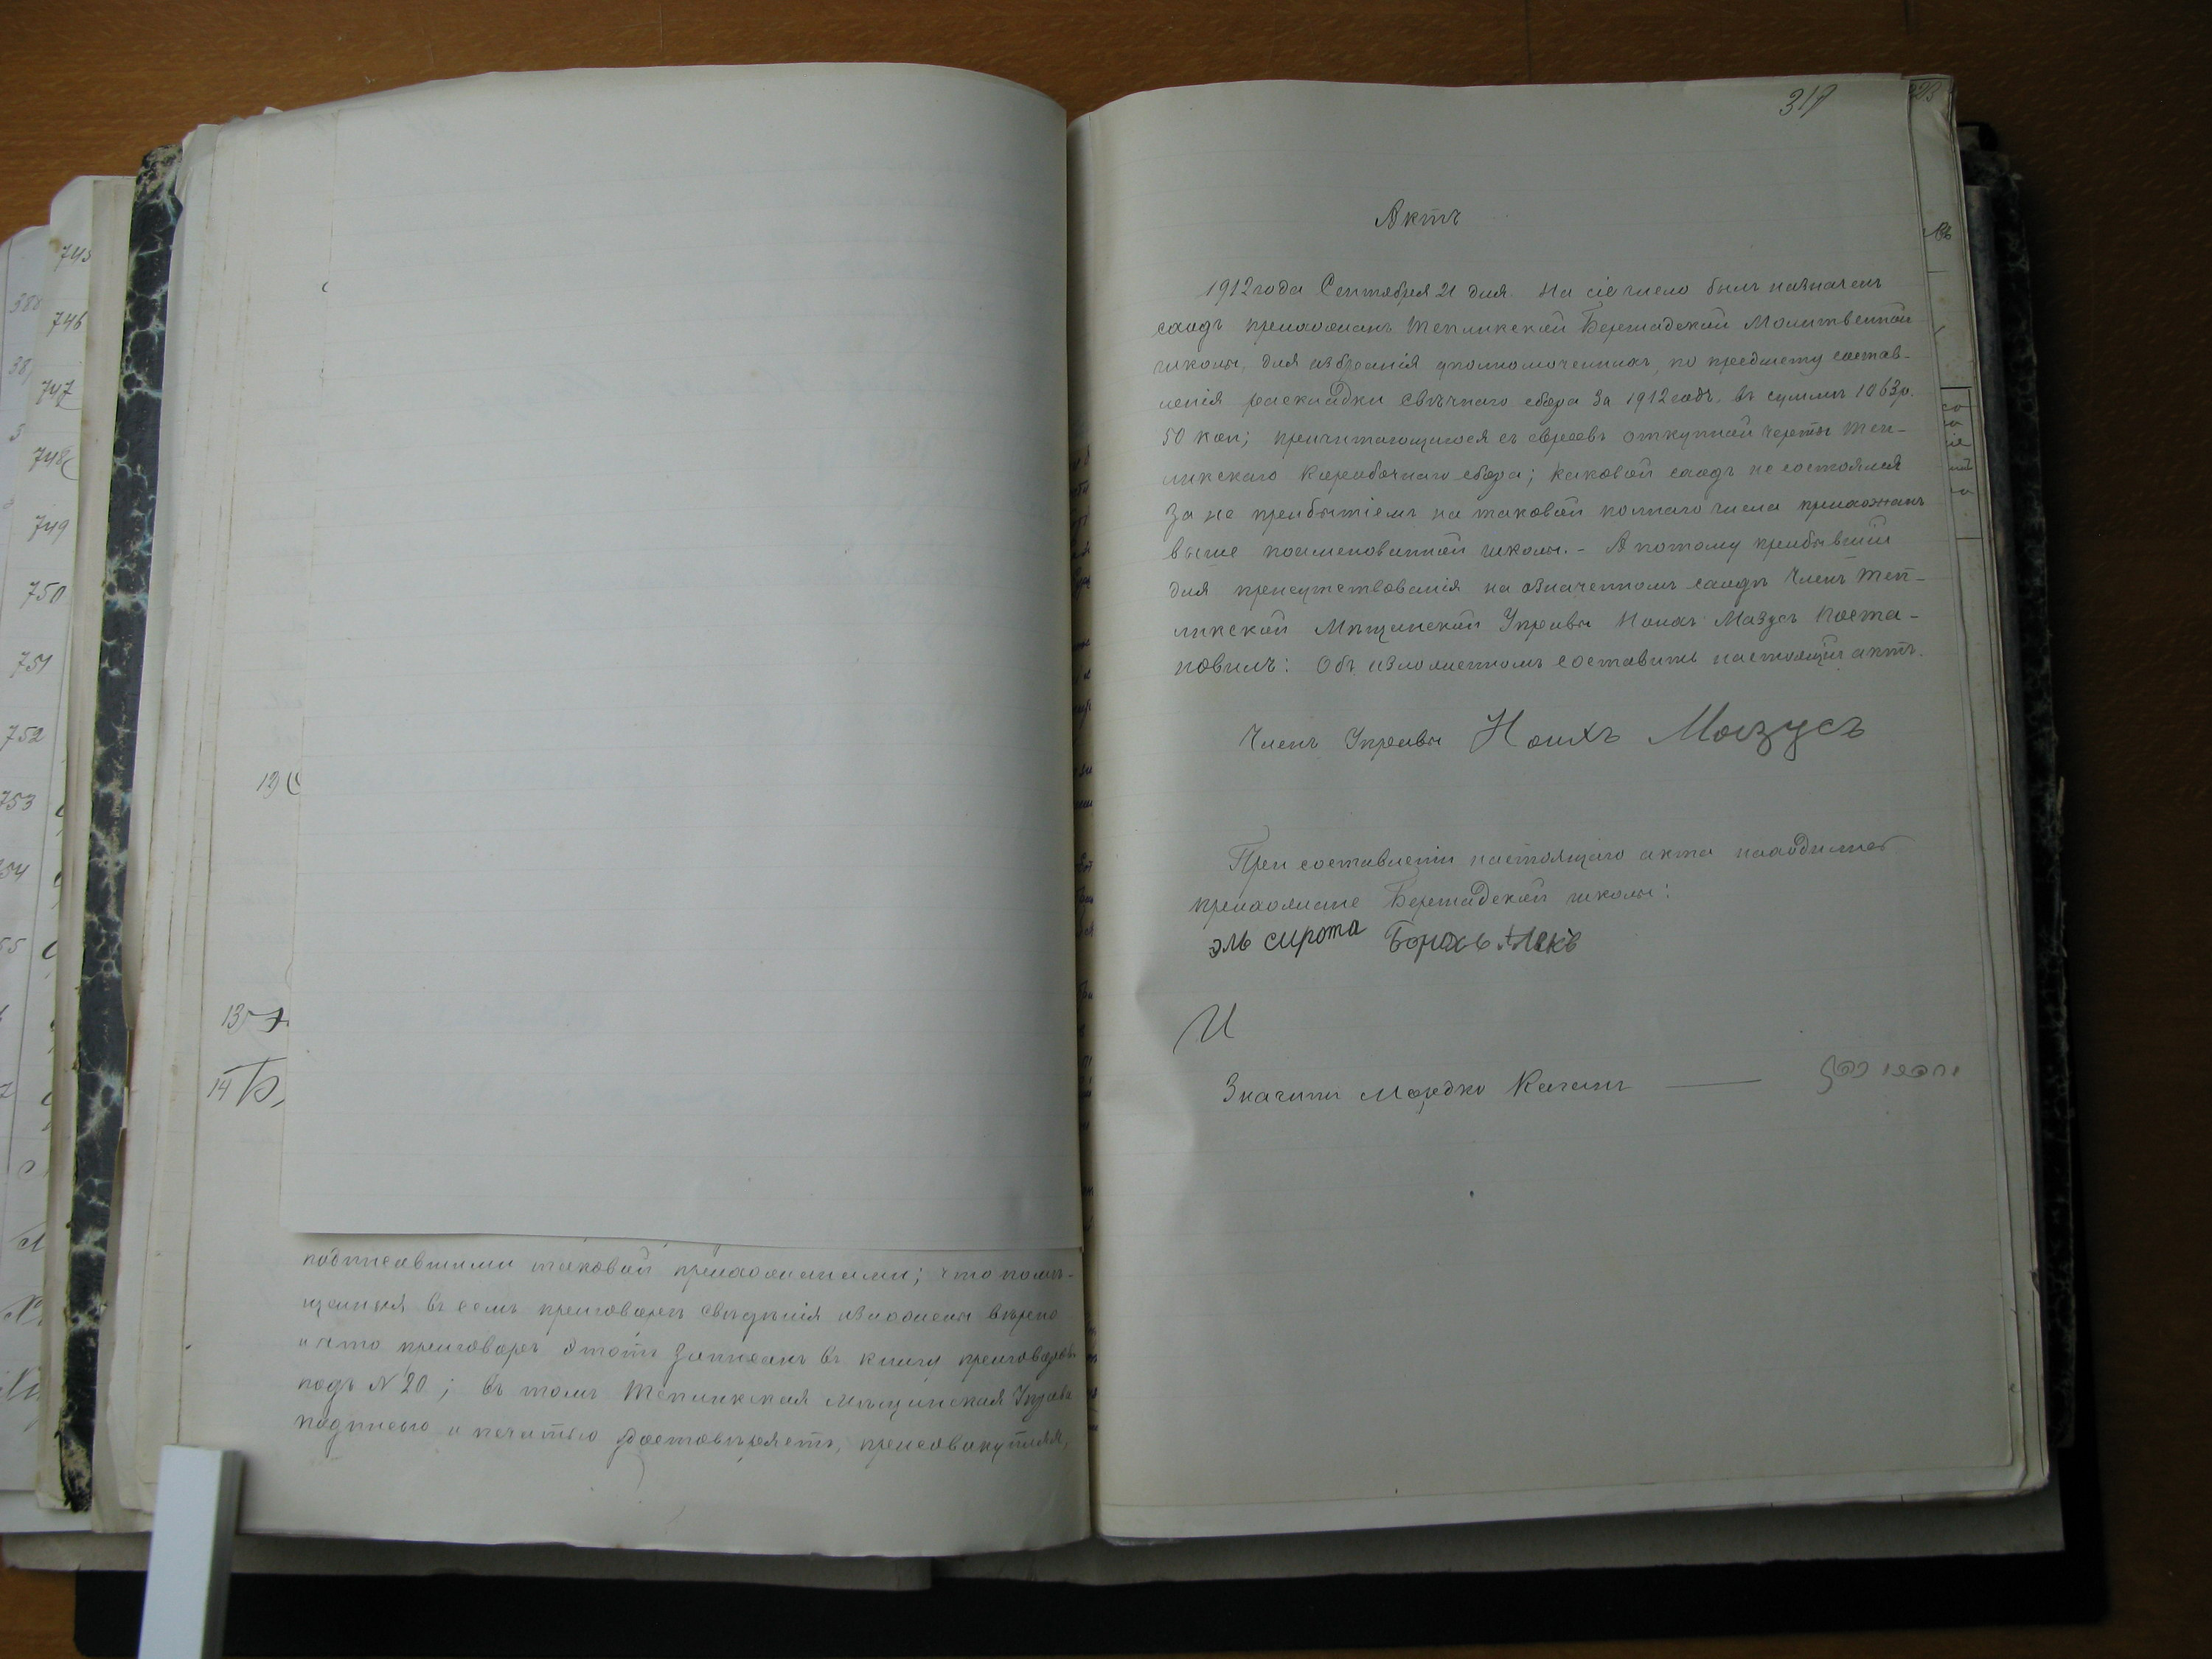 745
746
747
748
749
750
751
752
753
12
13
14 Б
подписавшими таковой прихожанами; что помѣ-
щенныя въ семъ приговорѣ свѣдѣнія изложены вѣрно
и что приговоръ этотъ записанъ въ книгу приговоровъ
подъ № 20; въ томъ Тепликская Мѣщанская Управа
подписью и печатью удостовѣряетъ, присовокупляя,
317
Актъ
1912 года Сентября 21 дня. На сіе число былъ назначенъ
сходъ прихожанъ Тепликской Бершадской Молитвенной
школы, для избранія уполномоченныхъ, по предмету состав-
ленія раскладки свѣчнаго сбора за 1912 годъ, въ суммѣ 1063 р.
50 коп; причитающагося съ евреевъ откупной черты Теп-
ликскаго Коробочнаго сбора; каковой сходъ не состоялся
За не прибытіемъ на таковой полнаго числа прихожанъ
выше поименованной школы. - А потому прибывшій
для присутствованія на означенномъ сходѣ Членъ Теп-
ликской Мѣщанской Управы Ноихъ Мазусъ Поста-
новилъ: Объ изложенномъ составить настоящій актъ.
Членъ Управы Ноихъ Мазусъ
При составленіи настоящаго акта находились
прихожане Бершадской школы:
эль сирота Борохъ
И
Значитъ Мордко Каганъ